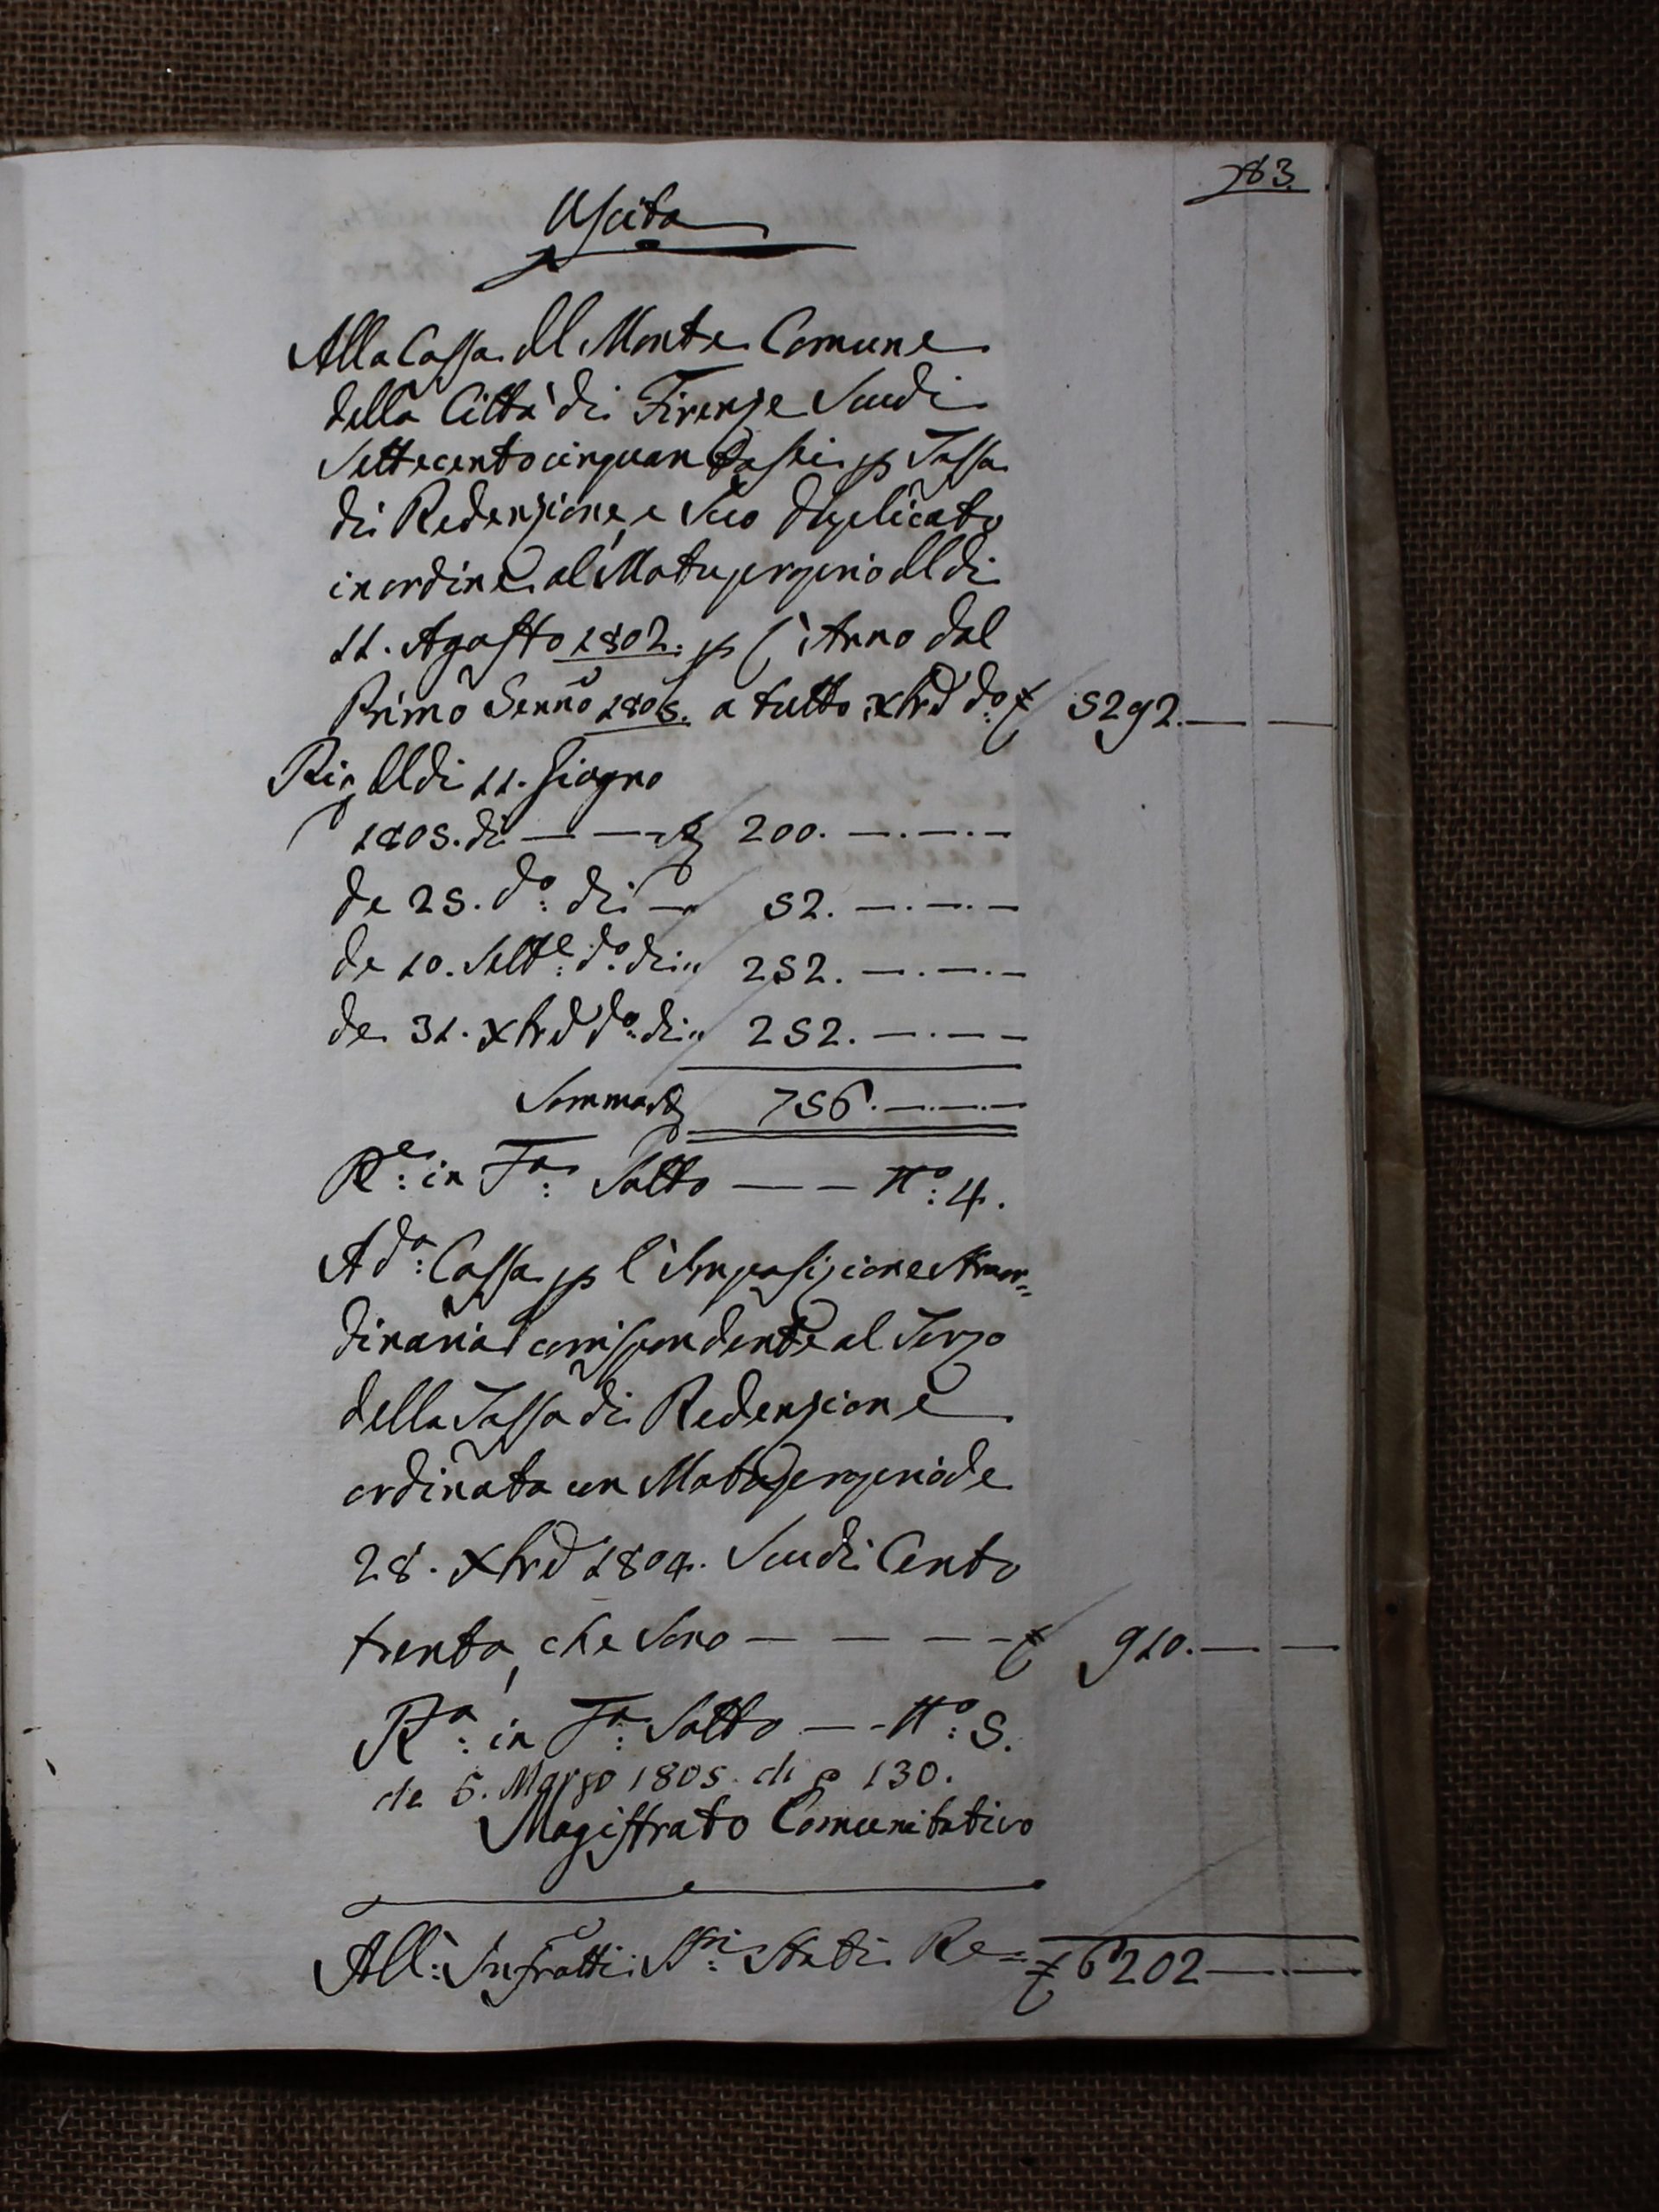 283.
Uscita
Alla Cassa del Monte Comune
della Città di Firenze Scudi
Settecentocinquantasei p Tassa
di Redenzione, e suo duplicato
in ordine al Motuproprio del di
11. Agosto 1802. p l'Anno dal
Primo Genno 1805. a tutto Xbre do £ 5292.— —
Ric del di 11. Giugno
1805. di — — 200. —.—.—
de 25. do: di — 52. —.—.—
de 10. Sette: do. di " 252. —.—.—
de 31. Xbre do: di " 252. —.—.—
Somma 756.—.—.—
Re: in Fa: Sotto — — No: 4.
A da: Cassa p l'Imposizione Straor=
dinaria corrispondente al Terzo
della Tassa di Redenzione
ordinata con Motuproprio de
28. Xbre 1804. Scudi Cento
trenta, che sono — — — — £ 910.— —
Ra: in Fa: Sotto — - No: 5.
de 5. Marzo 1805. di 130.
Magistrato Comunitativo
All: Infratti: Sri: Stati Re= £ 6202—.—